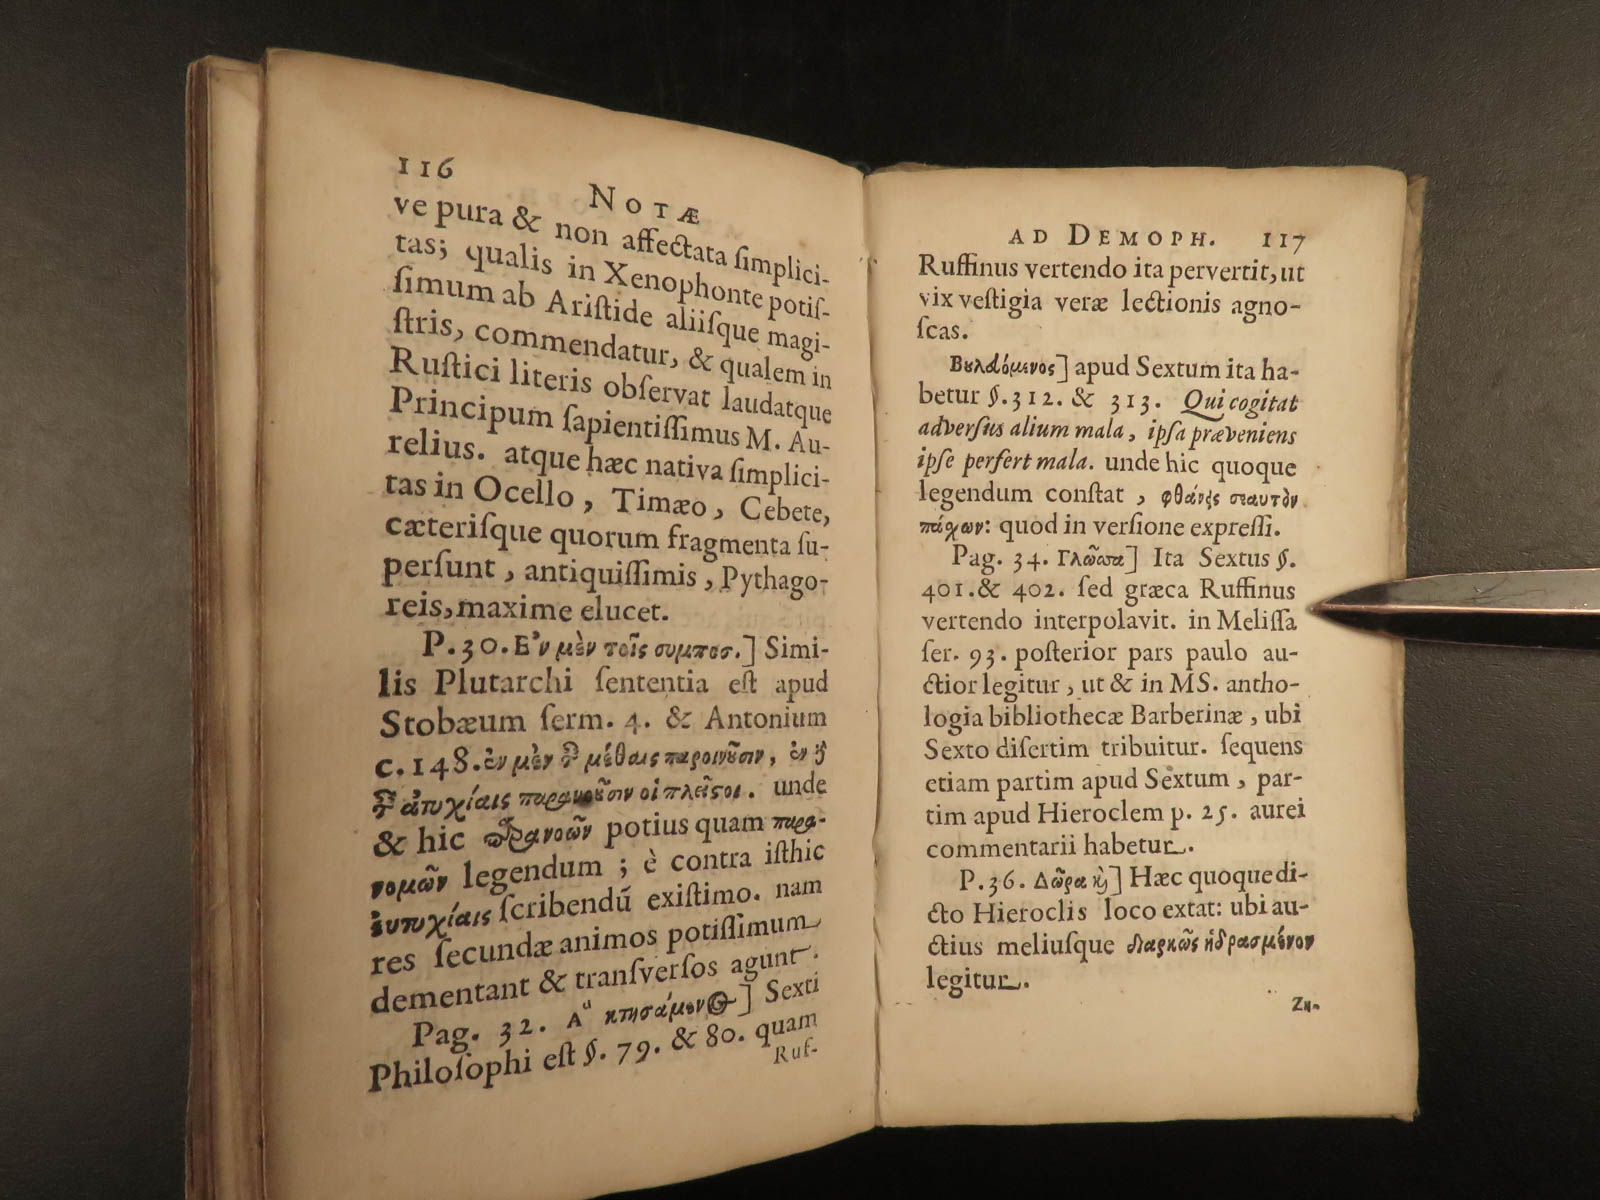 116
NOTÆ
ve pura & non affectata ſimplici-
tas; qualis in Xenophonte potiſ-
ſimum ab Ariſtide aliiſque magi-
ſtris, commendatur, & qualem in
Ruſtici literis obſervat laudatque
Principum ſapientiſſimus M. Au-
relius. atque hæc nativa ſimplici-
tas in Ocello, Timæo, Cebete,
cæteriſque quorum fragmenta ſu-
perſunt, antiquiſſimis, Pythago-
reis, maxime elucet.
P. 30. Ε'ν μὲν τοῖς συμποσ.] Simi-
lis Plutarchi ſententia eſt apud
Stobæum ſerm. 4. & Antonium
c. 148. ἐν μὲν μέθαις παροινοῦσιν, ἐν
ἀτυχίαις παρανοῦσιν οἱ πλεῖστοι. unde
& hic παρανοῶν potius quam παρα-
νομῶν legendum; è contra iſthic
ἐυτυχίαις ſcribendū exiſtimo. nam
res ſecundæ animos potiſſimum
dementant & tranſverſos agunt.
Pag. 32. Α῞ κτησάμενος] Sexti
Philoſophi eſt §. 79. & 80. quam
Ruf-
AD DEMOPH. 117
Ruffinus vertendo ita pervertit, ut
vix veſtigia veræ lectionis agno-
ſcas.
Βουλευόμενος] apud Sextum ita ha-
betur §. 312. & 313. Qui cogitat
adverſus alium mala, ipſa præveniens
ipſe perfert mala. unde hic quoque
legendum conſtat, φθάνεις σεαυτὸν
πάσχων: quod in verſione expreſſi.
Pag. 34. Γλῶσσα] Ita Sextus §.
401. & 402. ſed græca Ruffinus
vertendo interpolavit. in Meliſſa
ſer. 93. poſterior pars paulo au-
ctior legitur, ut & in MS. antho-
logia bibliothecæ Barberinæ, ubi
Sexto diſertim tribuitur. ſequens
etiam partim apud Sextum, par-
tim apud Hieroclem p. 25. aurei
commentarii habetur.
P. 36. Δῶρα καὶ] Hæc quoque di-
cto Hieroclis loco extat: ubi au-
ctius meliuſque διαρκῶς ἡδρασμένον
legitur.
Ζη-